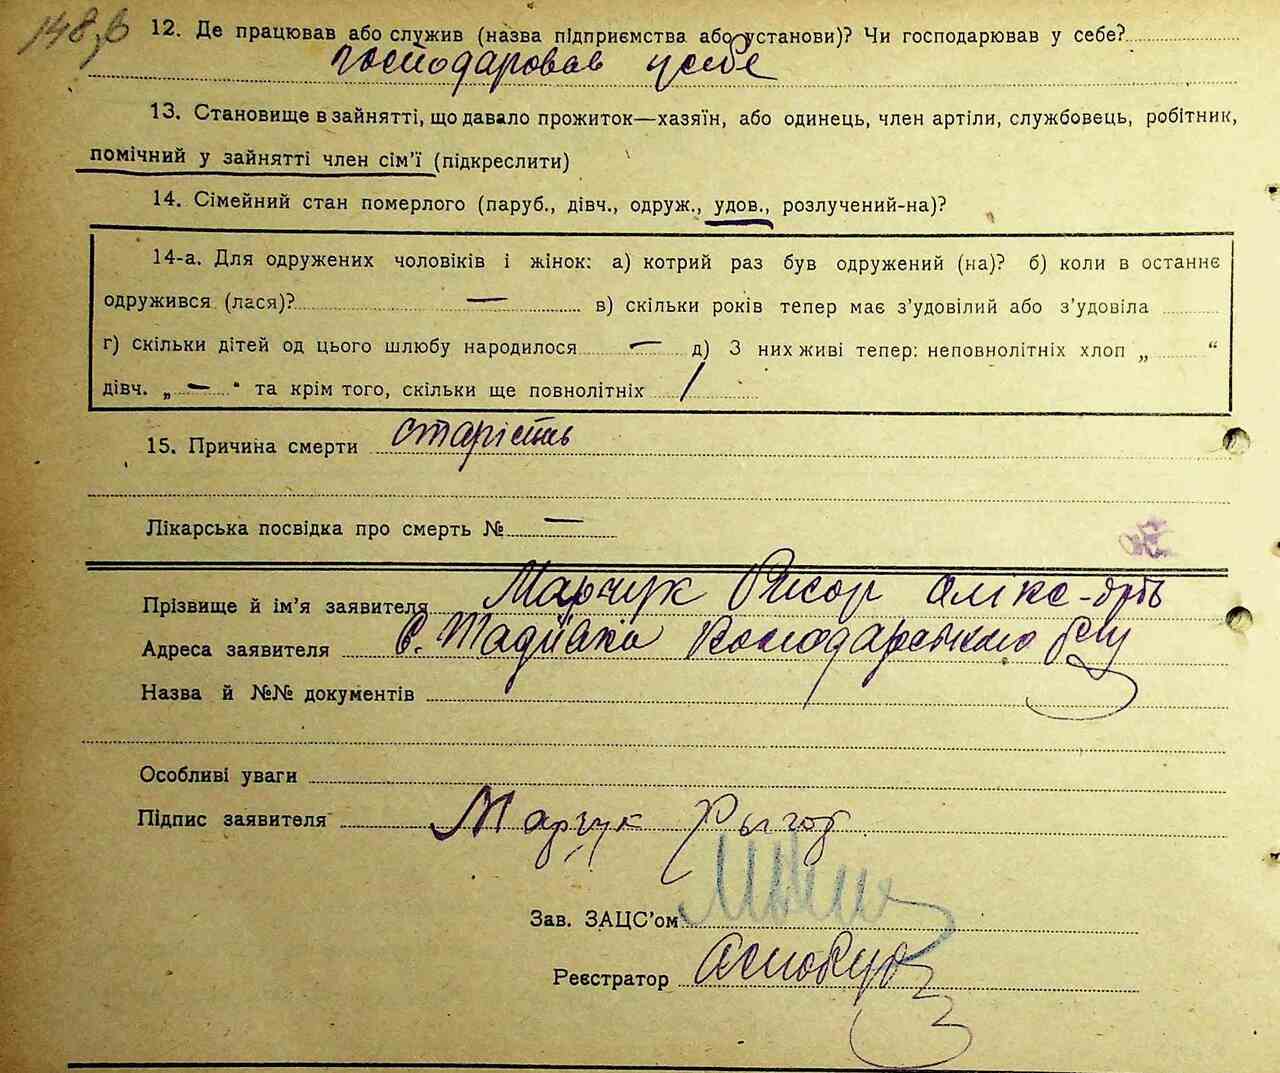 148 зв
12. Де працював або служив (назва підприємства або установи)? Чи господарював у себе?
господаровав у себе
13. Становище в зайнятті, що давало прожиток—хазяїн, або одинець, член артіли, службовець, робітник,
помічний у зайнятті член сім'ї (підкреслити)
14. Сімейний стан померлого (паруб., дівч., одруж., удов., розлучений-на)?
14-а. Для одружених чоловіків і жінок: а) котрий раз був одружений (на)? б) коли в останнє
одружився (лася)? — в) скільки років тепер має з'удовілий або з'удовіла
г) скільки дітей од цього шлюбу народилося — д) З них живі тепер: неповнолітніх хлоп „ “
дівч. „ — “ та крім того, скільки ще повнолітніх /
15. Причина смерти старість
Лікарська посвідка про смерть № —
Прізвище й ім'я заявителя Марчук
Адреса заявителя с. Тадіівка Володарського р-ну
Назва й №№ документів
Особливі уваги
Підпис заявителя Марчук Рыгор
Зав. ЗАЦС'ом
Реєстратор